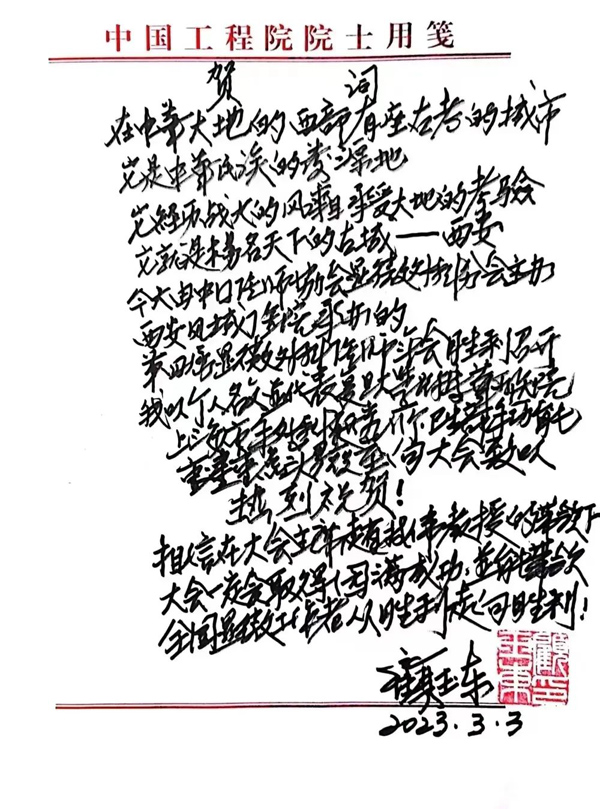 中国工程院院士用笺
贺 词
在中华大地的西部有座古老的城市
它是中华民族的发源地
它经历战火的风霜承受大地的考验
它就是扬名天下的古城——西安
今天由中国医师协会显微外科分会主办
西安凤城医院承办的
第四届显微外科医师年会胜利召开
我以个人名义并代表复旦大学附属华山医院
上海市手外科研究所卫生部手功能
重建重点实验室向大会致以
热烈祝贺！
相信在大会主席 教授的带领下
大会一定会取得圆满成功，并能
全国显微工作者从胜利走向胜利！
顾玉东
2023.3.3
顾玉东印